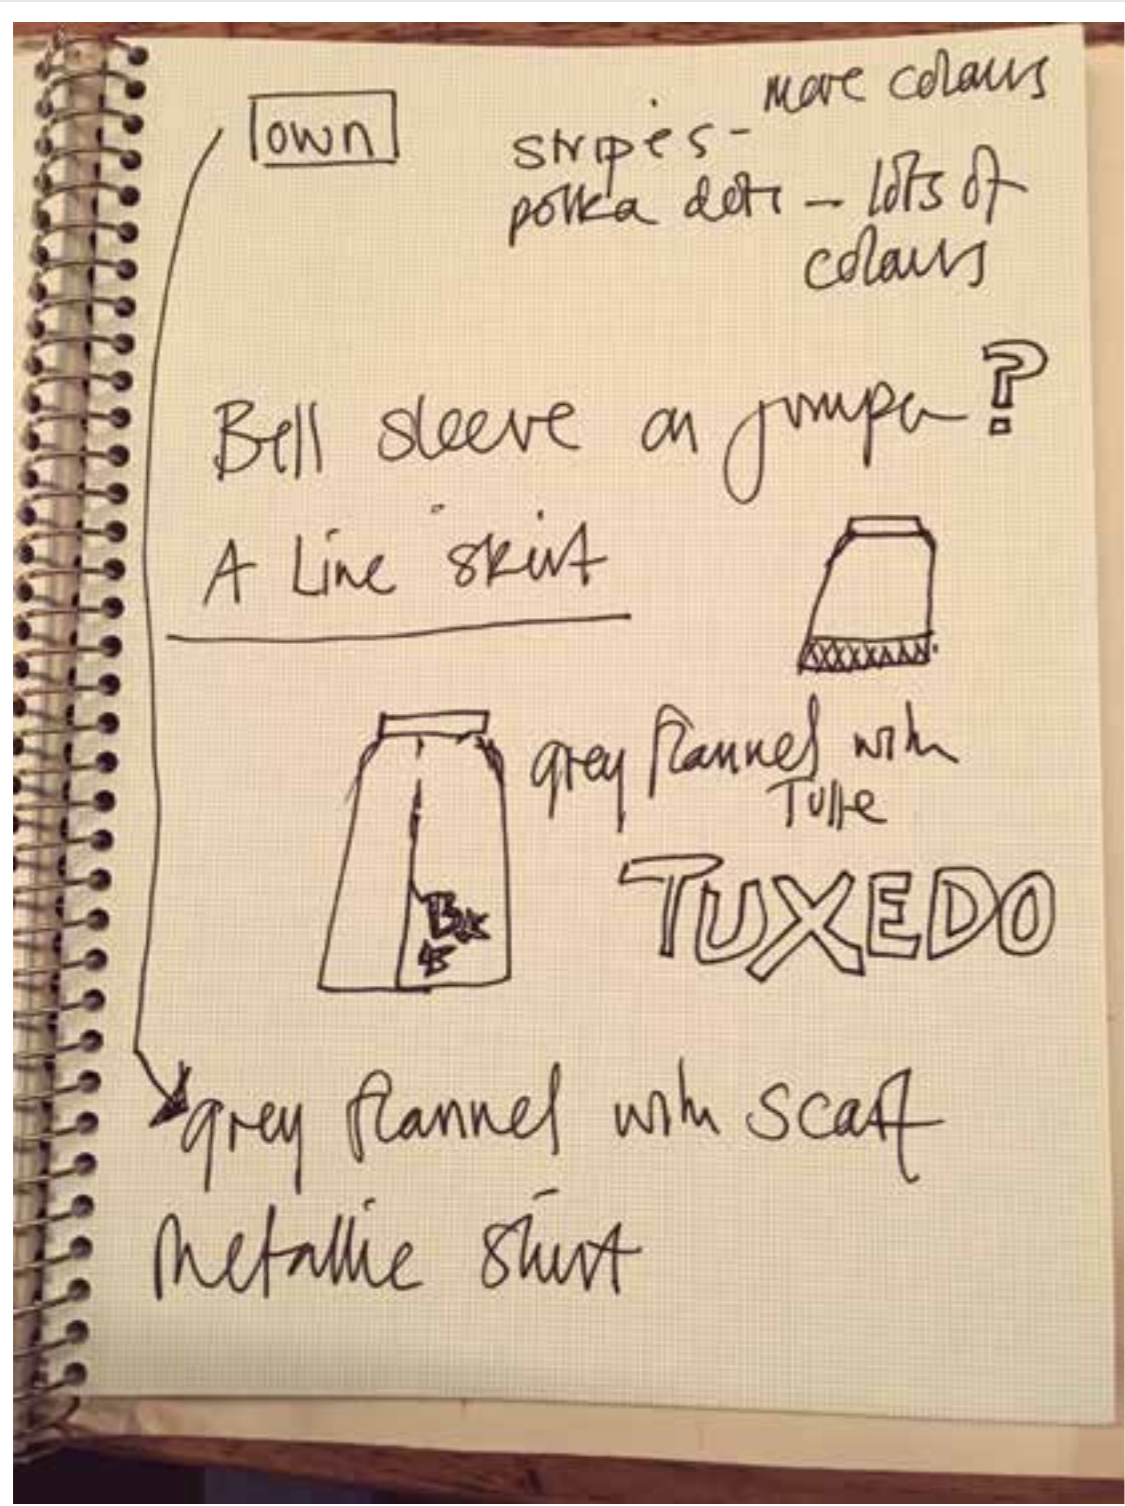 own
more colours
stripes -
polka dots - lots of
colours
Bell sleeve on jumper ?
A Line skirt
grey flannel with
Tulle
TUXEDO
grey flannel with scarf
metallic shirt